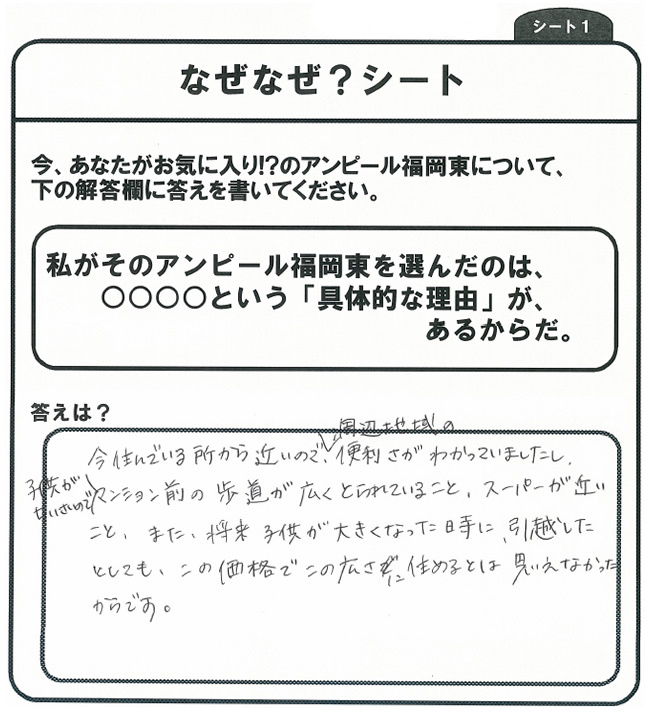 シート1
なぜなぜ？シート
今、あなたがお気に入り!?のアンピール福岡東について、
下の解答欄に答えを書いてください。
私がそのアンピール福岡東を選んだのは、
○○○○という「具体的な理由」が、
あるからだ。
答えは？
周辺地域の
今住んでいる所から近いので、便利さがわかっていましたし、
子供が
小さいので
マンション前の歩道が広くとられていること、スーパーが近い
こと、また、将来子供が大きくなった時に、引越した
としても、この価格でこの広さに住めるとは思えなかった
からです。